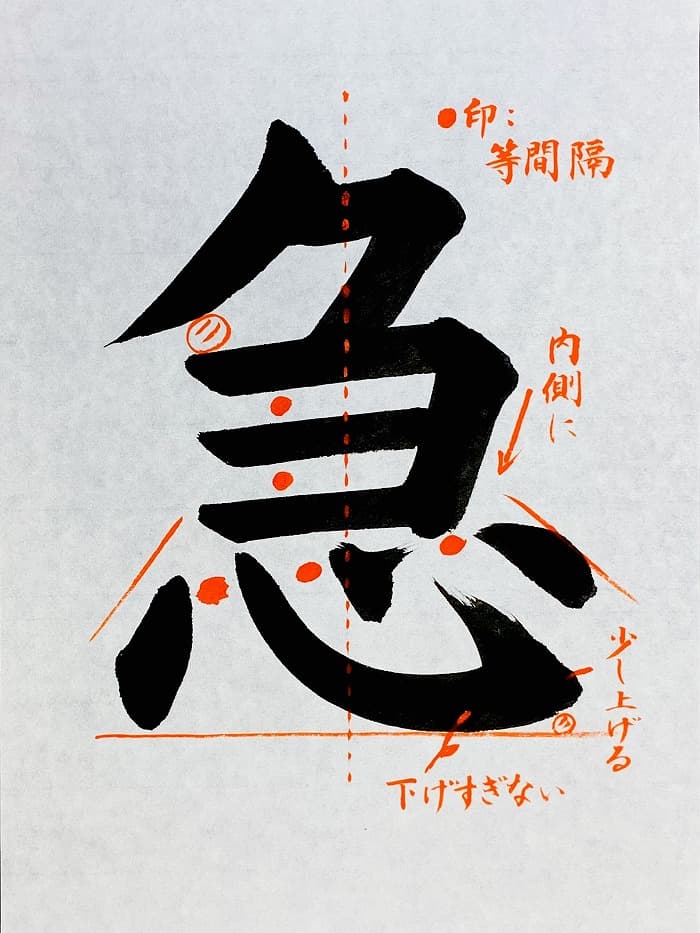 急
●印：
等間隔
内側に
少し上げる
下げすぎない